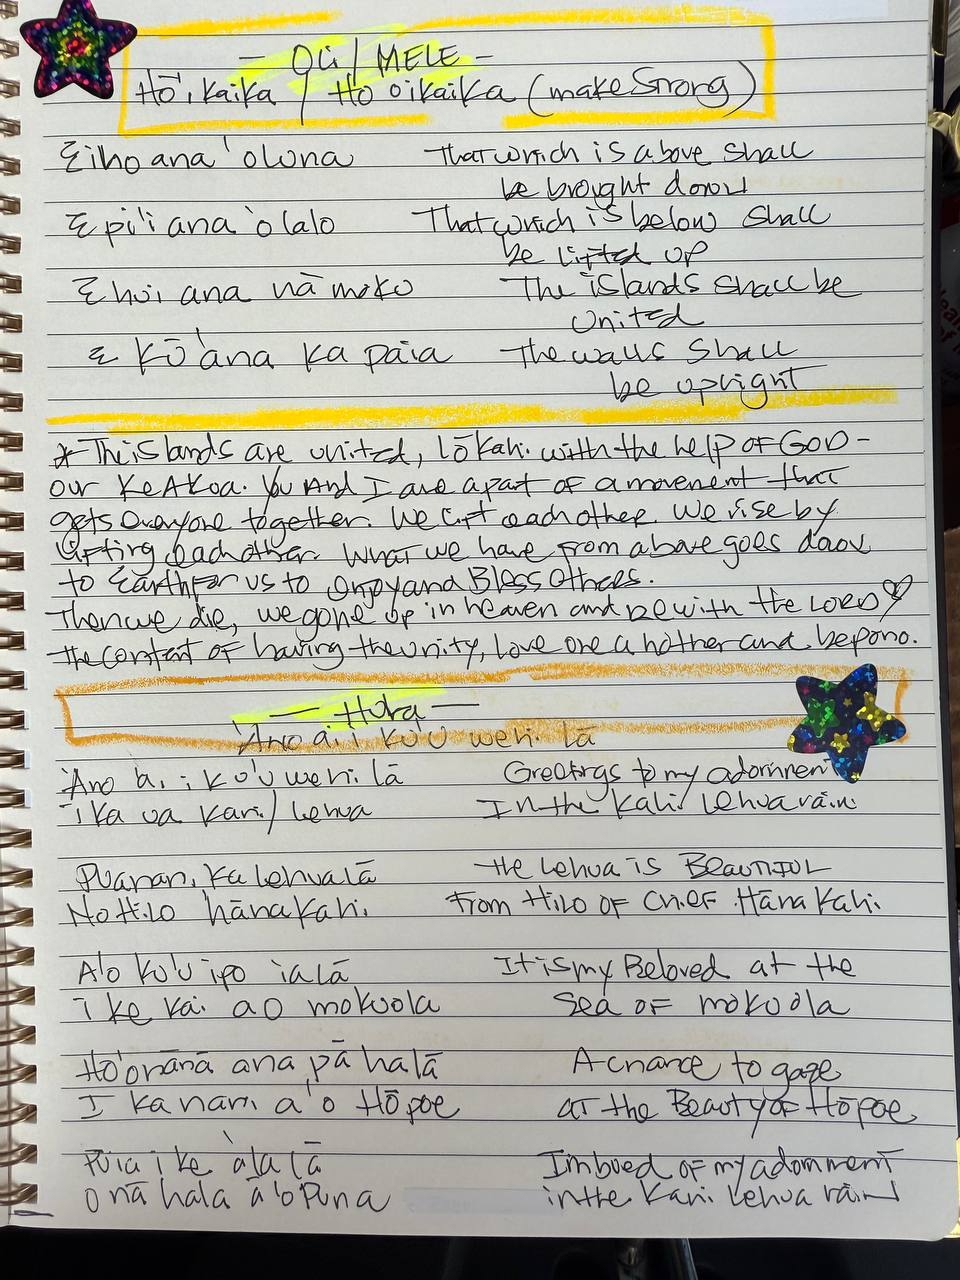 - Oli / MELE -
Hō'ikaika / Ho'oikaika (make Strong)
E iho ana 'oluna That which is above shall
be brought down
E pi'i ana 'olalo That which is below shall
be lifted up
E hui ana nā moku The islands shall be
united
E Kū ana ka paia The walls shall
be upright
* The islands are united, lōkahi with the help of GOD -
our Ke AKua. You And I are a part of a movement that
gets everyone together. We lift each other. We rise by
lifting each other. What we have from above goes down
to Earth for us to enjoy and Bless others.
Then we die, we gone up in heaven and be with the LORD ♡
the content of having the unity, love one another and be pono.
— Hula —
'Ano ai i ku'u wehi lā
'Ano ai i ku'u wehi lā Greetings to my adornment
i ka ua Kani lehua In the Kani lehua rain
Puanani ka lehua lā the Lehua is BEAUTIFUL
No Hilo hānakahi From Hilo OF CHIEF Hānakahi
A'o ku'u ipo ia lā It is my Beloved at the
i ke kai ao mokuola Sea OF mokuola
Ho'onānā ana pā halā A chance to gaze
I ka nani a'o Hōpoe AT the Beauty OF Hōpoe
Puia i ke 'ala lā Imbued of my adornment
o nā hala a'o Puna in the Kani lehua rain